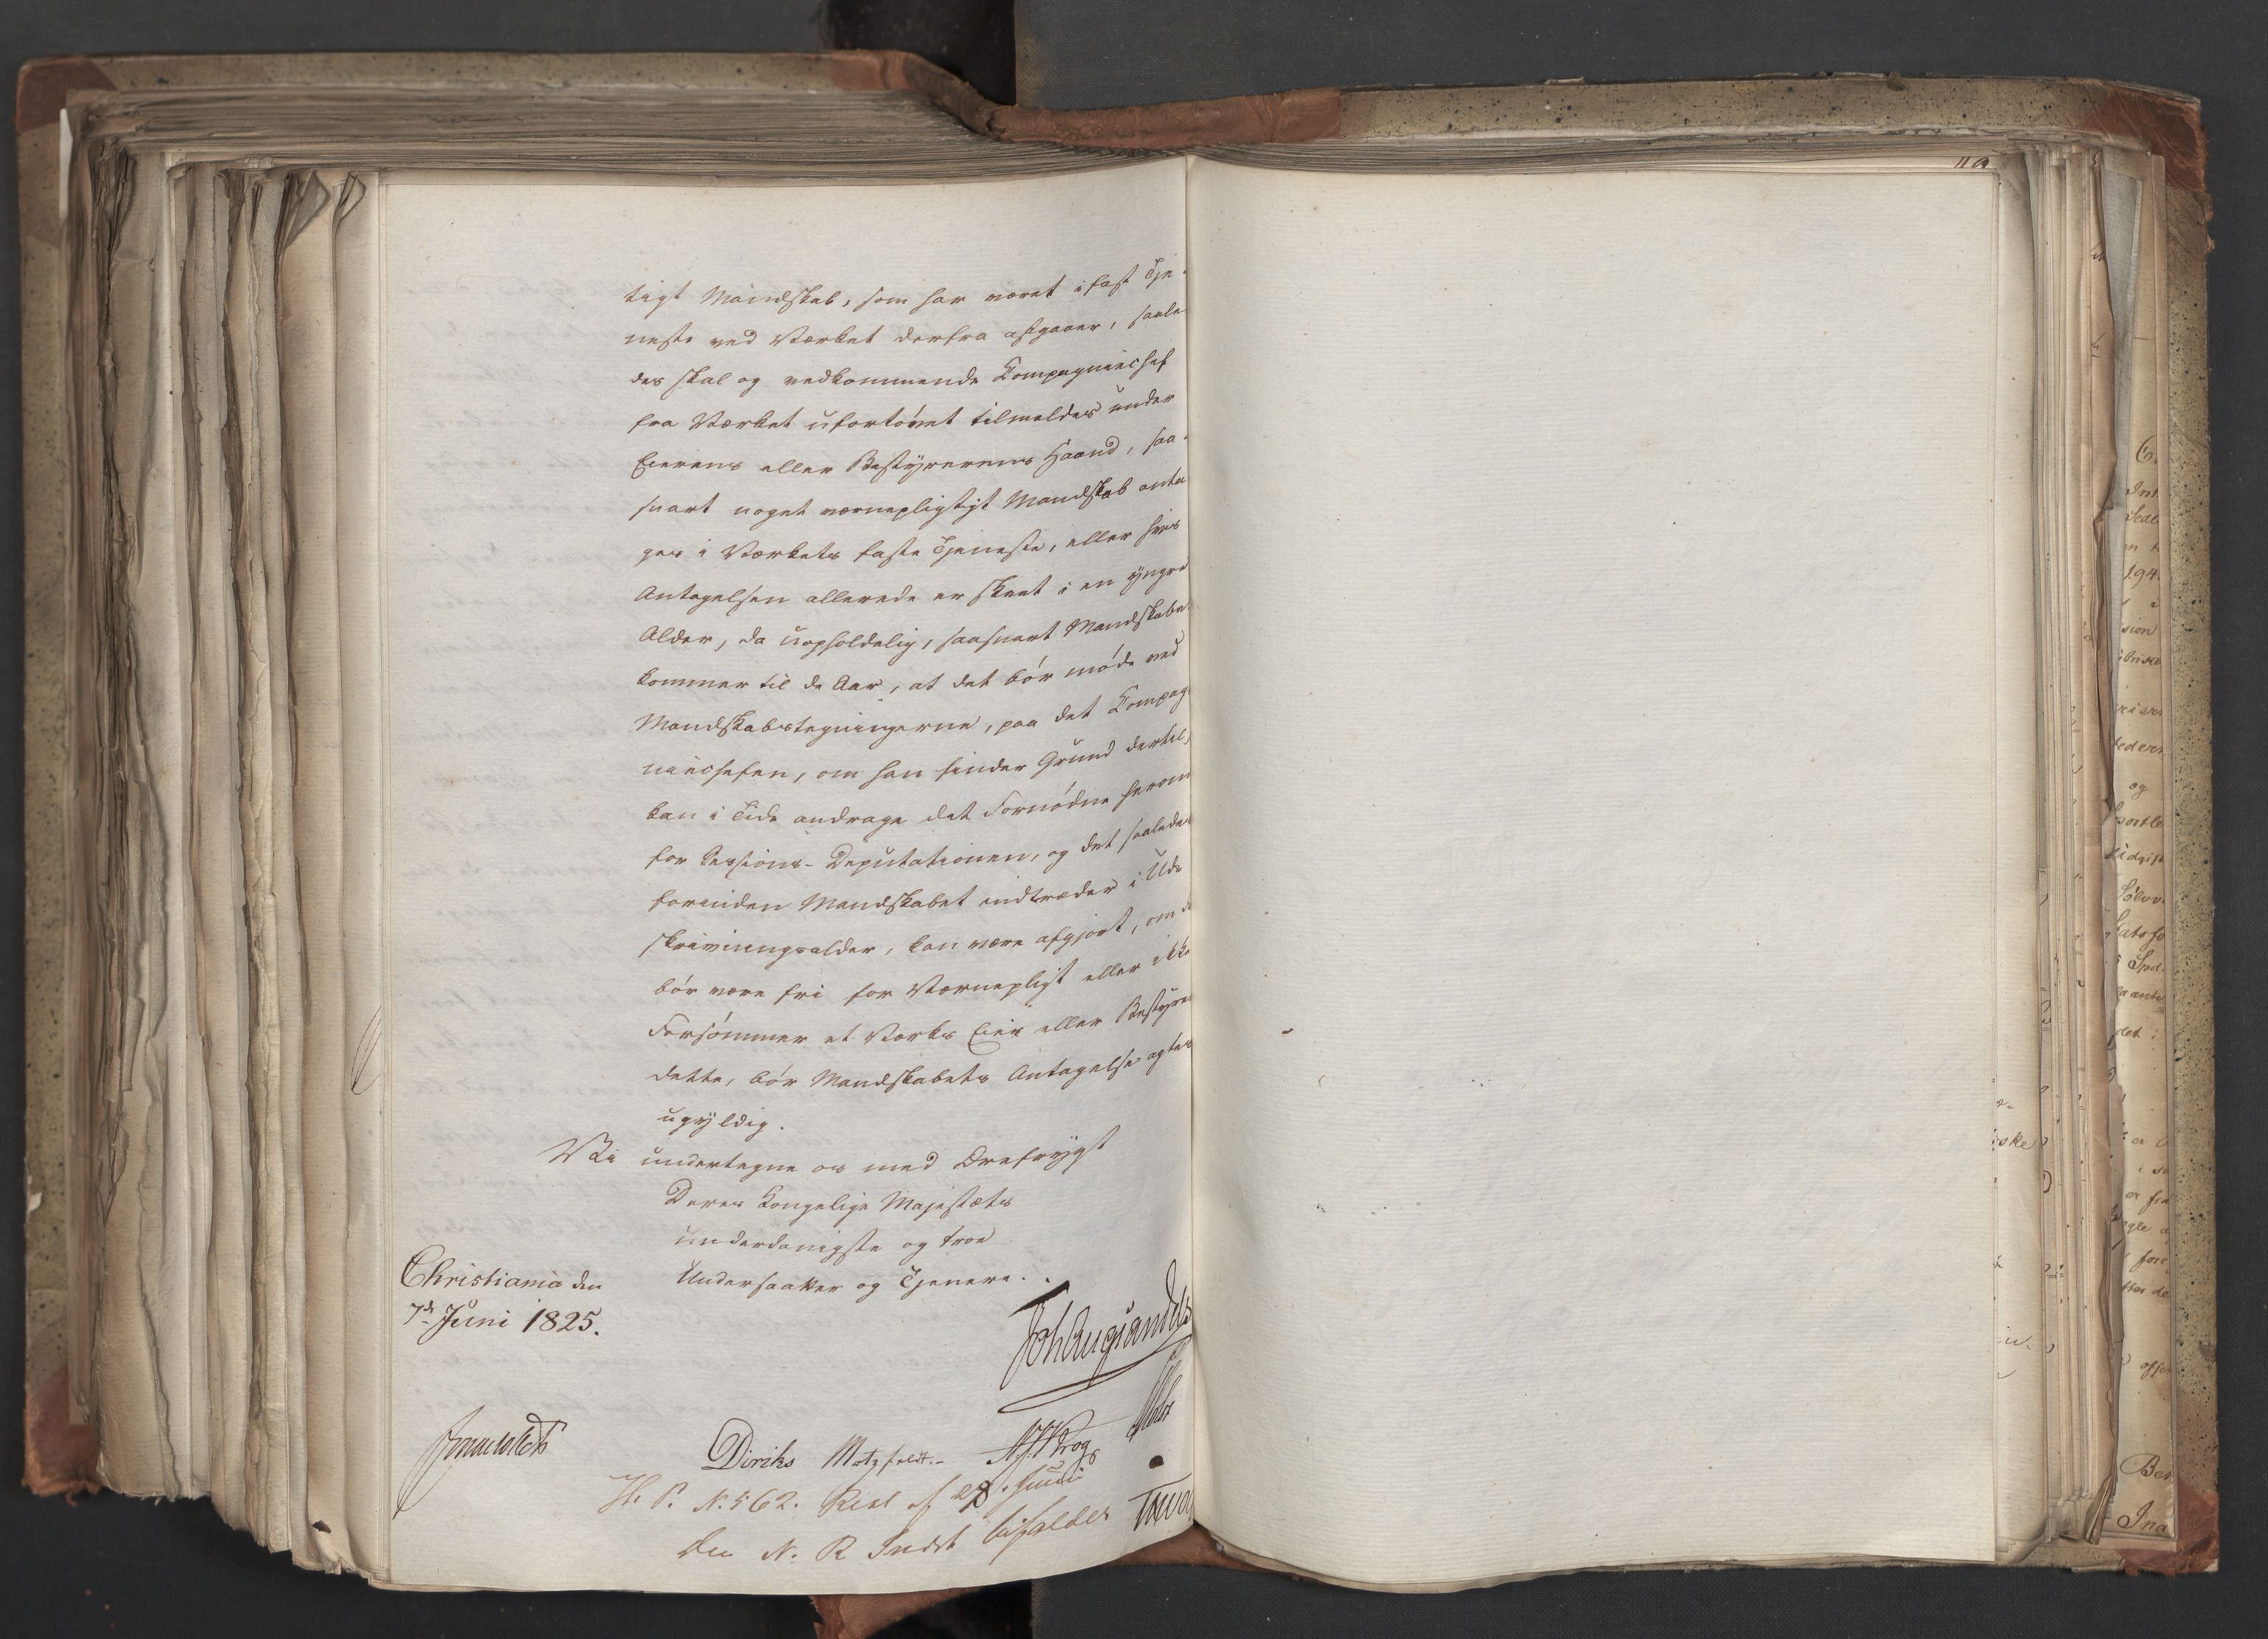 tigt Mandskab, som har været i fast Tje-
neste ved Værket derfra afgaaer, saale
des skal og vedkommende Compagniechef
fra Værket ufortövet tilmeldes under
Eierens eller Bestÿrerens Haand, saa-
snart noget værnepligtigt Mandskab anta
ges i Værkets faste Tjeneste, eller hvis
Antagelsen allerede er skeet i en ÿngre
Alder, da uopholdelig, saasnart Mandskabe
kommer til de Aar, at det bör möde ved
Mandskabstegningerne, paa det Compag
niechefen, om han finder Grund dertil,
kan i Tide andrage det Fornödne herom
for Sessions-Deputationen, og det saaledes
forinden Mandskabet indtræder i Ud
skrivningsalder, kan være afgjort, om d
bör være fri for Værnepligt eller ikke
Forsömmer et Værks Eier eller Bestÿre
dette, bör Mandskabets Antagelse agtes
ugÿldig.
Vi undertegne os med Ærefrÿgt
Deres Kongelige Majestæts
underdanigste og troe
Undersaatter og Tjenere.
Christiania den
7de Juni 1825.
Joh Aug Sandels
Diriks Motzfeldt.- Krog
H. P. N. 562. Resl af 28. Juni
Den N. R Indst bifaldes